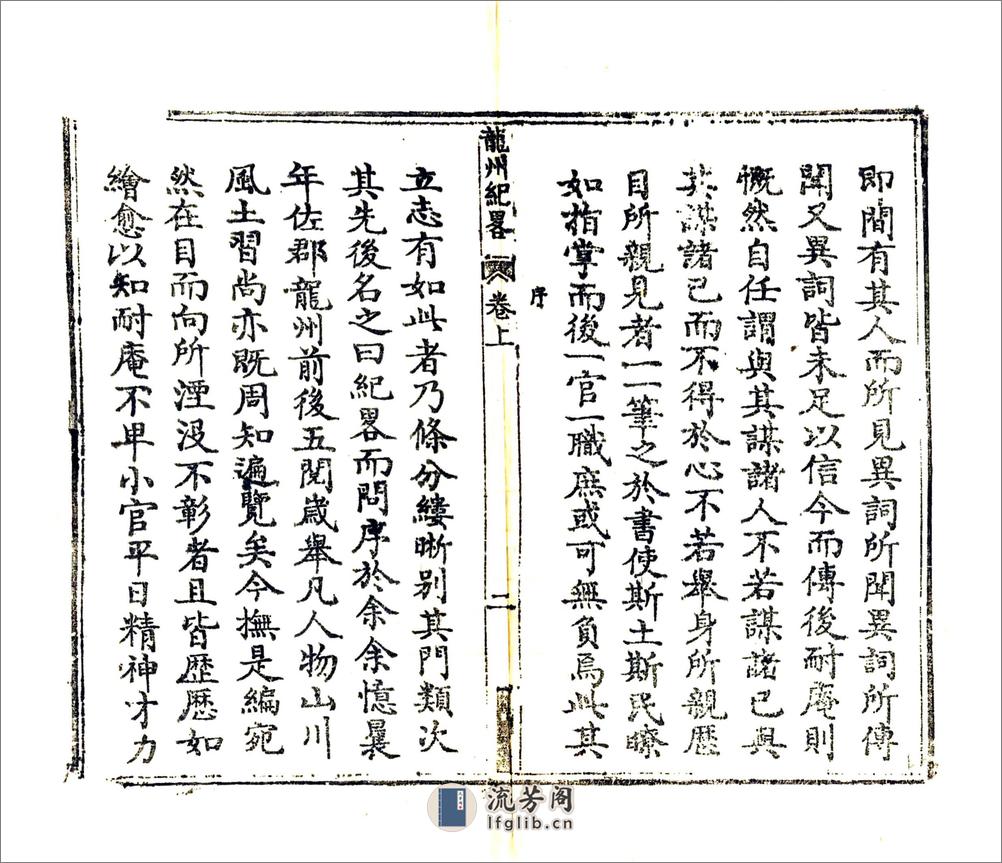 即間有其人而所見異詞所聞異詞所傳
聞又異詞皆未足以信今而傳後耐庵則
慨然自任謂與其謀諸人不若謀諸已與
其謀諸已而不得於心不若舉身所親歷
目所親見者一一筆之於書使斯土斯民瞭
如指掌而後一官一職庶或可無負焉此其
序
龍州紀畧
卷上
二
立志有如此者乃條分縷晰別其門類次
其先後名之曰紀畧而問序於余余憶曩
年佐郡龍州前後五閱歲舉凡人物山川
風土習尚亦既周知遍覽矣今撫是編宛
然在目而向所湮沒不彰者且皆歷歷如
繪愈以知耐庵不卑小官平日精神才力
流芳阁
lfglib.cn